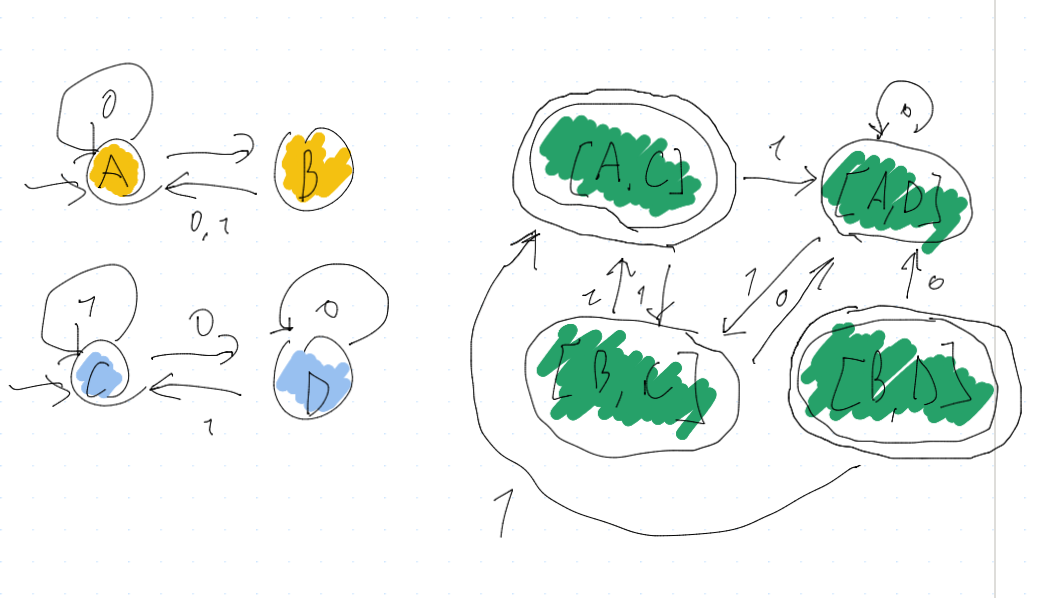 0
A
B
0, 1
1
C
0
0
D
1
[A, C]
1
0
[A, D]
1
1
1
0
0
[B, C]
[B, D]
1